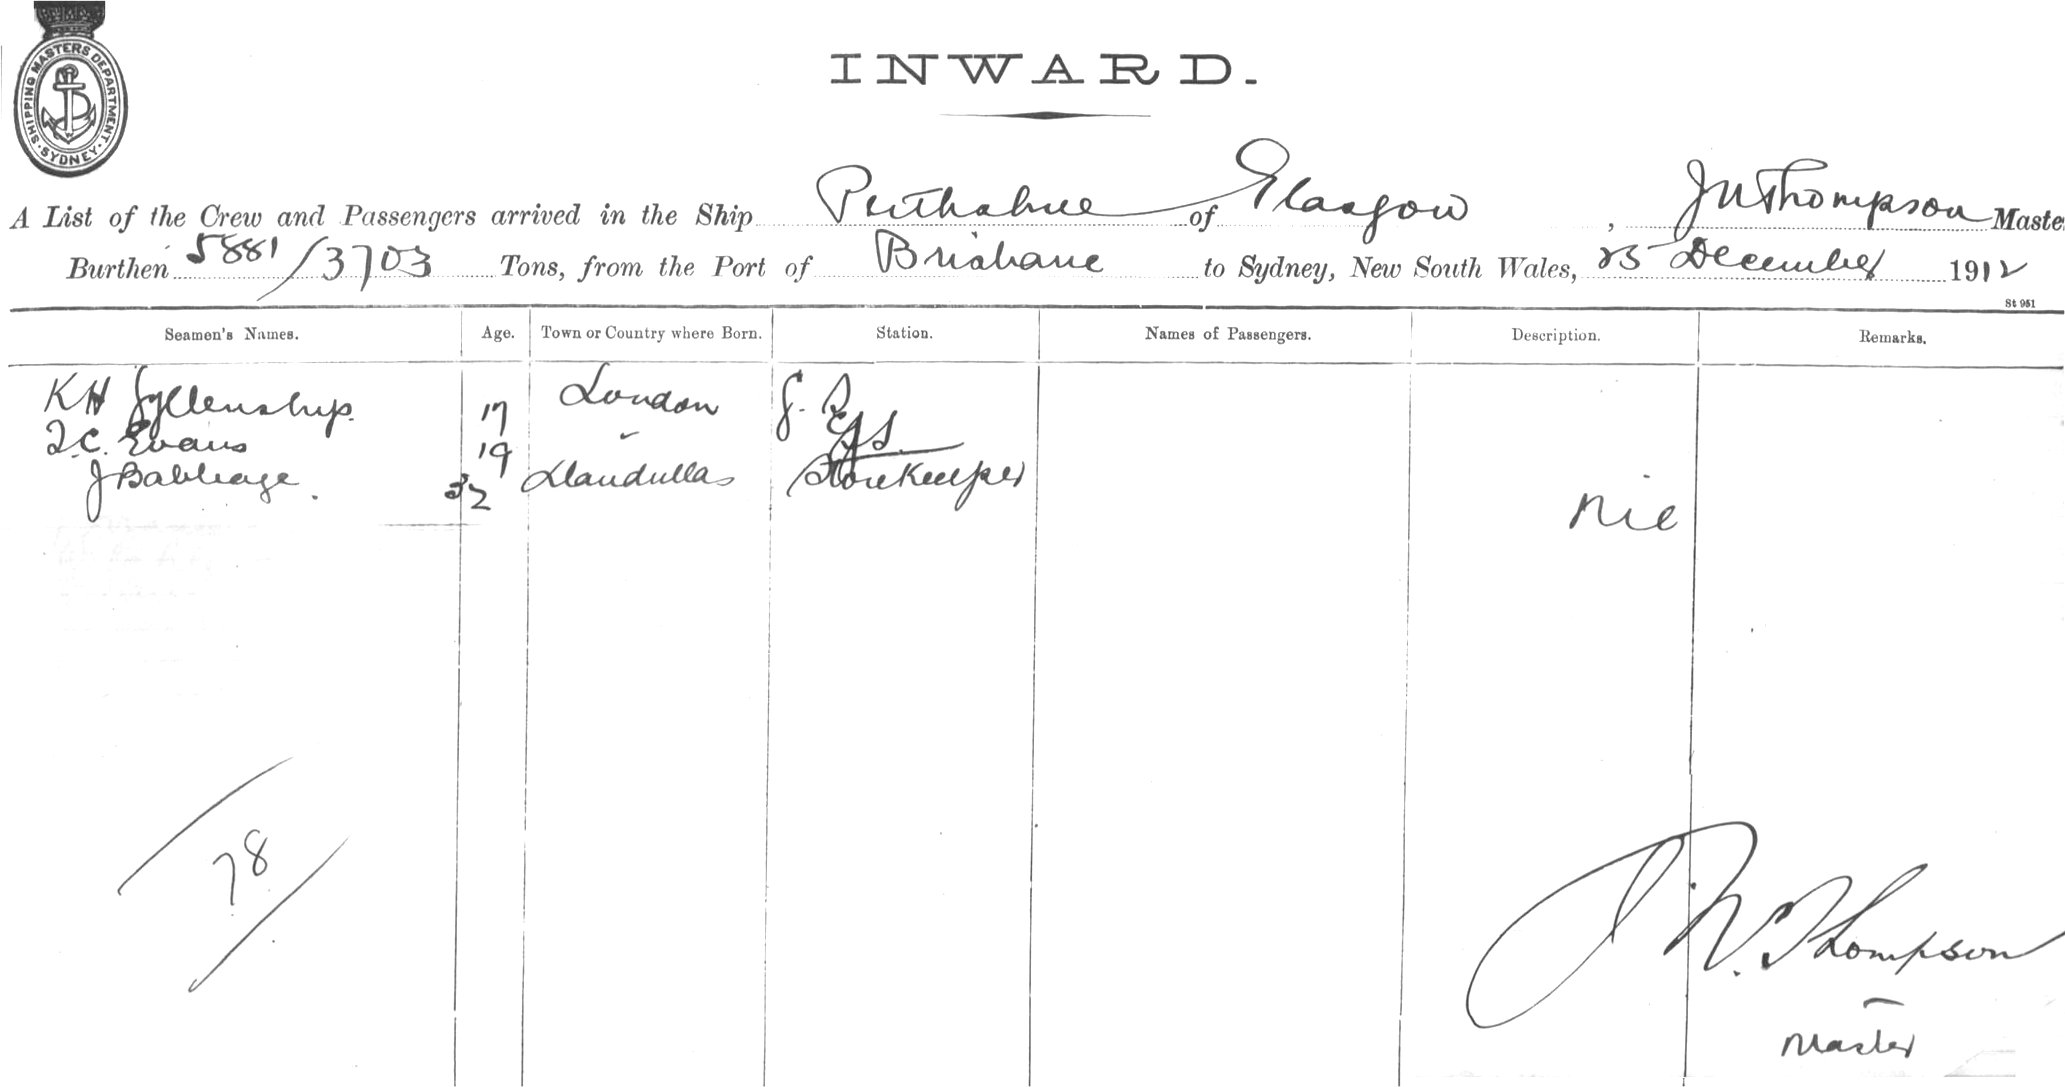 SHIPPING MASTERS DEPARTMENT. SYDNEY.
INWARD.
A List of the Crew and Passengers arrived in the Ship Perthshire of Glasgow, J W Thompson Maste
Burthen 5881/3703 Tons, from the Port of Brisbane to Sydney, New South Wales, 25 December 1912
St 951
Seamen's Names. Age. Town or Country where Born. Station. Names of Passengers. Description. Remarks.
K H Gyllenship 17 London
Evans 19 "
J Babbage. 32 Llandullas Storekeeper
Nil
78
J. W. Thompson
Master